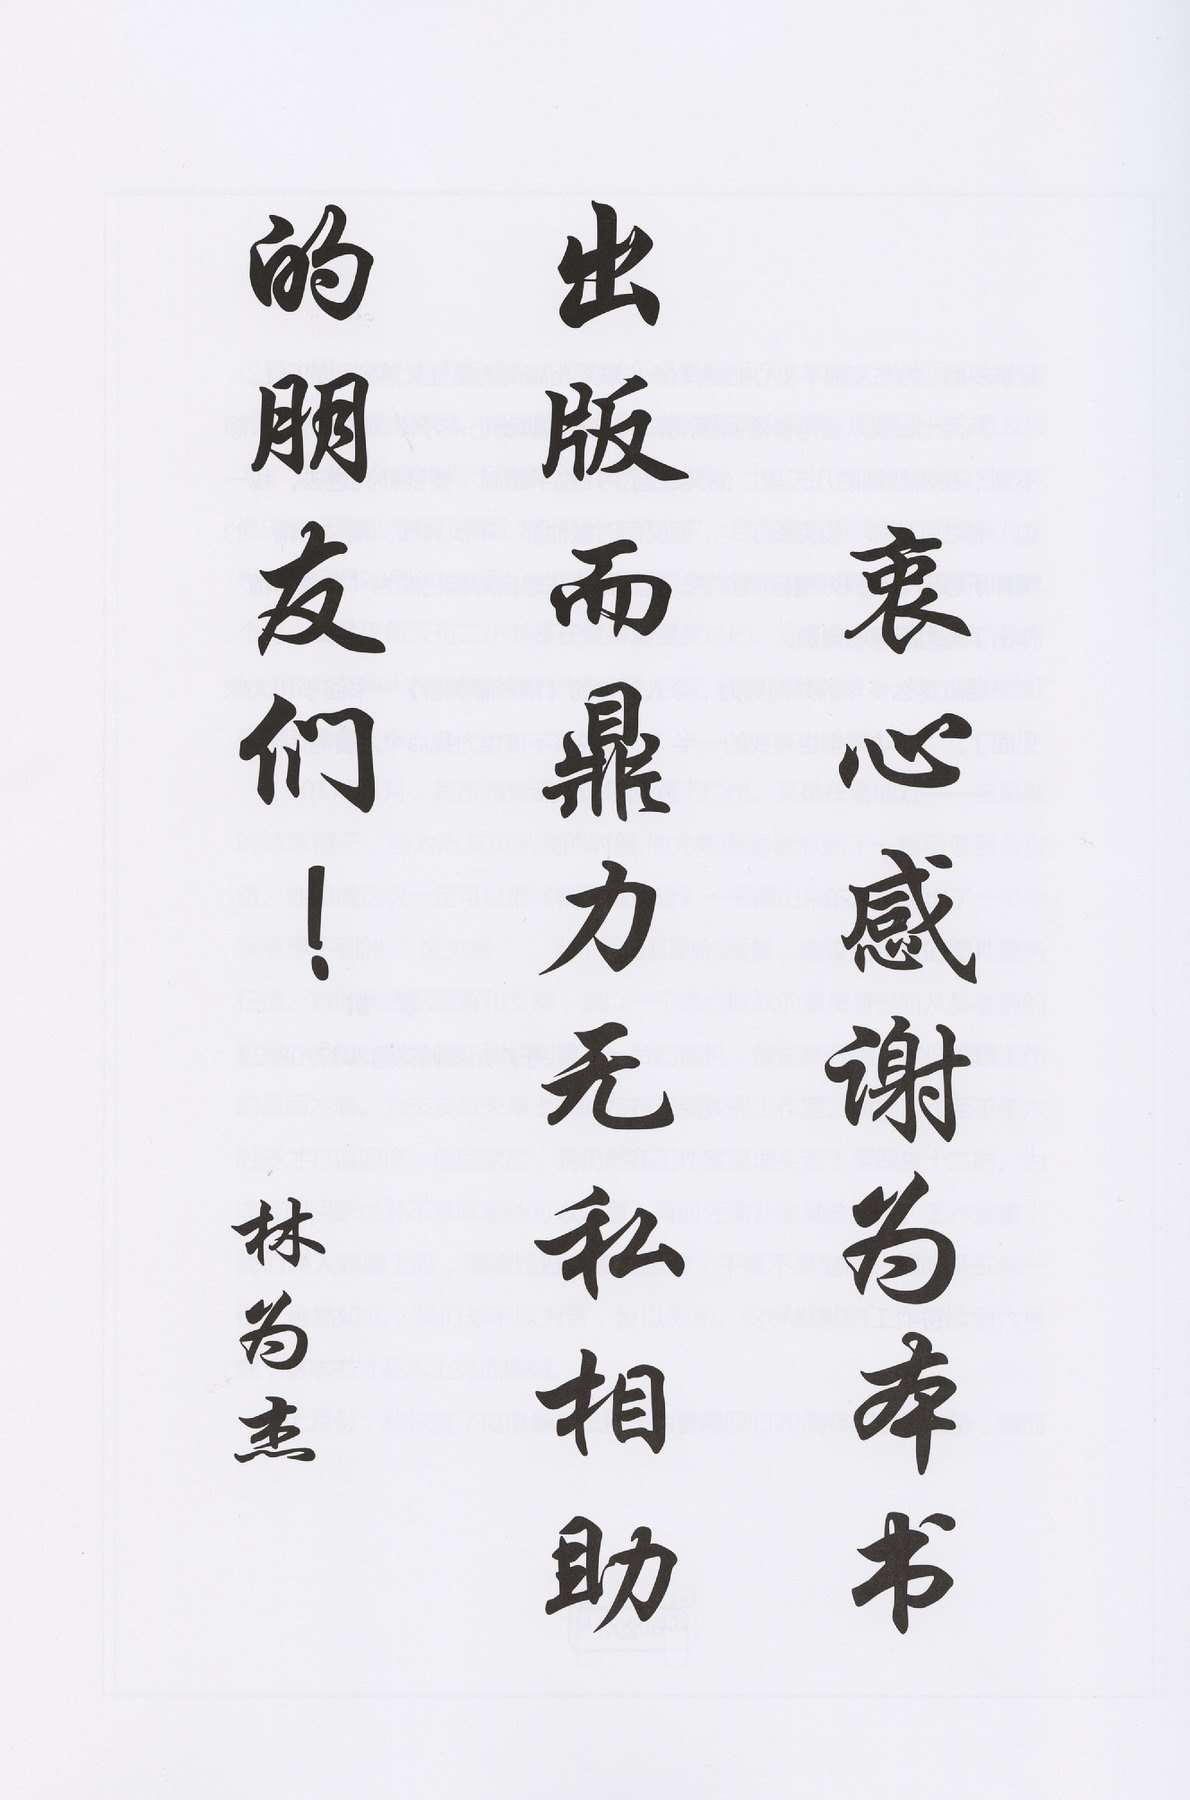 衷心感谢为本书
出版而鼎力无私相助
的朋友们！
林为杰